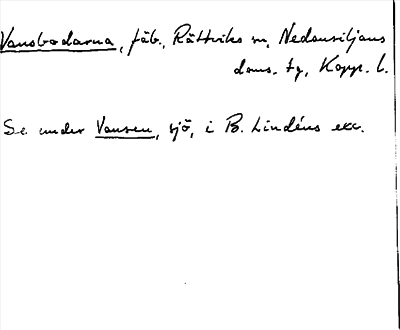 Vansbodarna, fäb., Rättviks sn, Nedansiljans
doms. tg, Kopp. l.
Se under Vansen, sjö, i B. Lindéns exc.